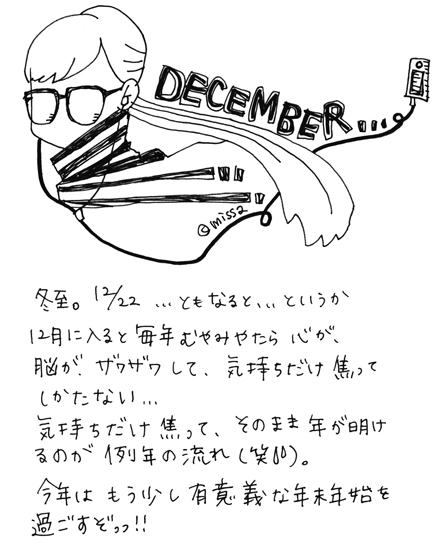 DECEMBER...
©missa
冬至。12/22 …ともなると、…というか
12月に入ると毎年むやみやたら心が、
脳が、ザワザワして、気持ちだけ焦って
しかたない…
気持ちだけ焦って、そのまま年が明け
るのが例年の流れ(笑)。
今年はもう少し有意義な年末年始を
過ごすぞっっ!!